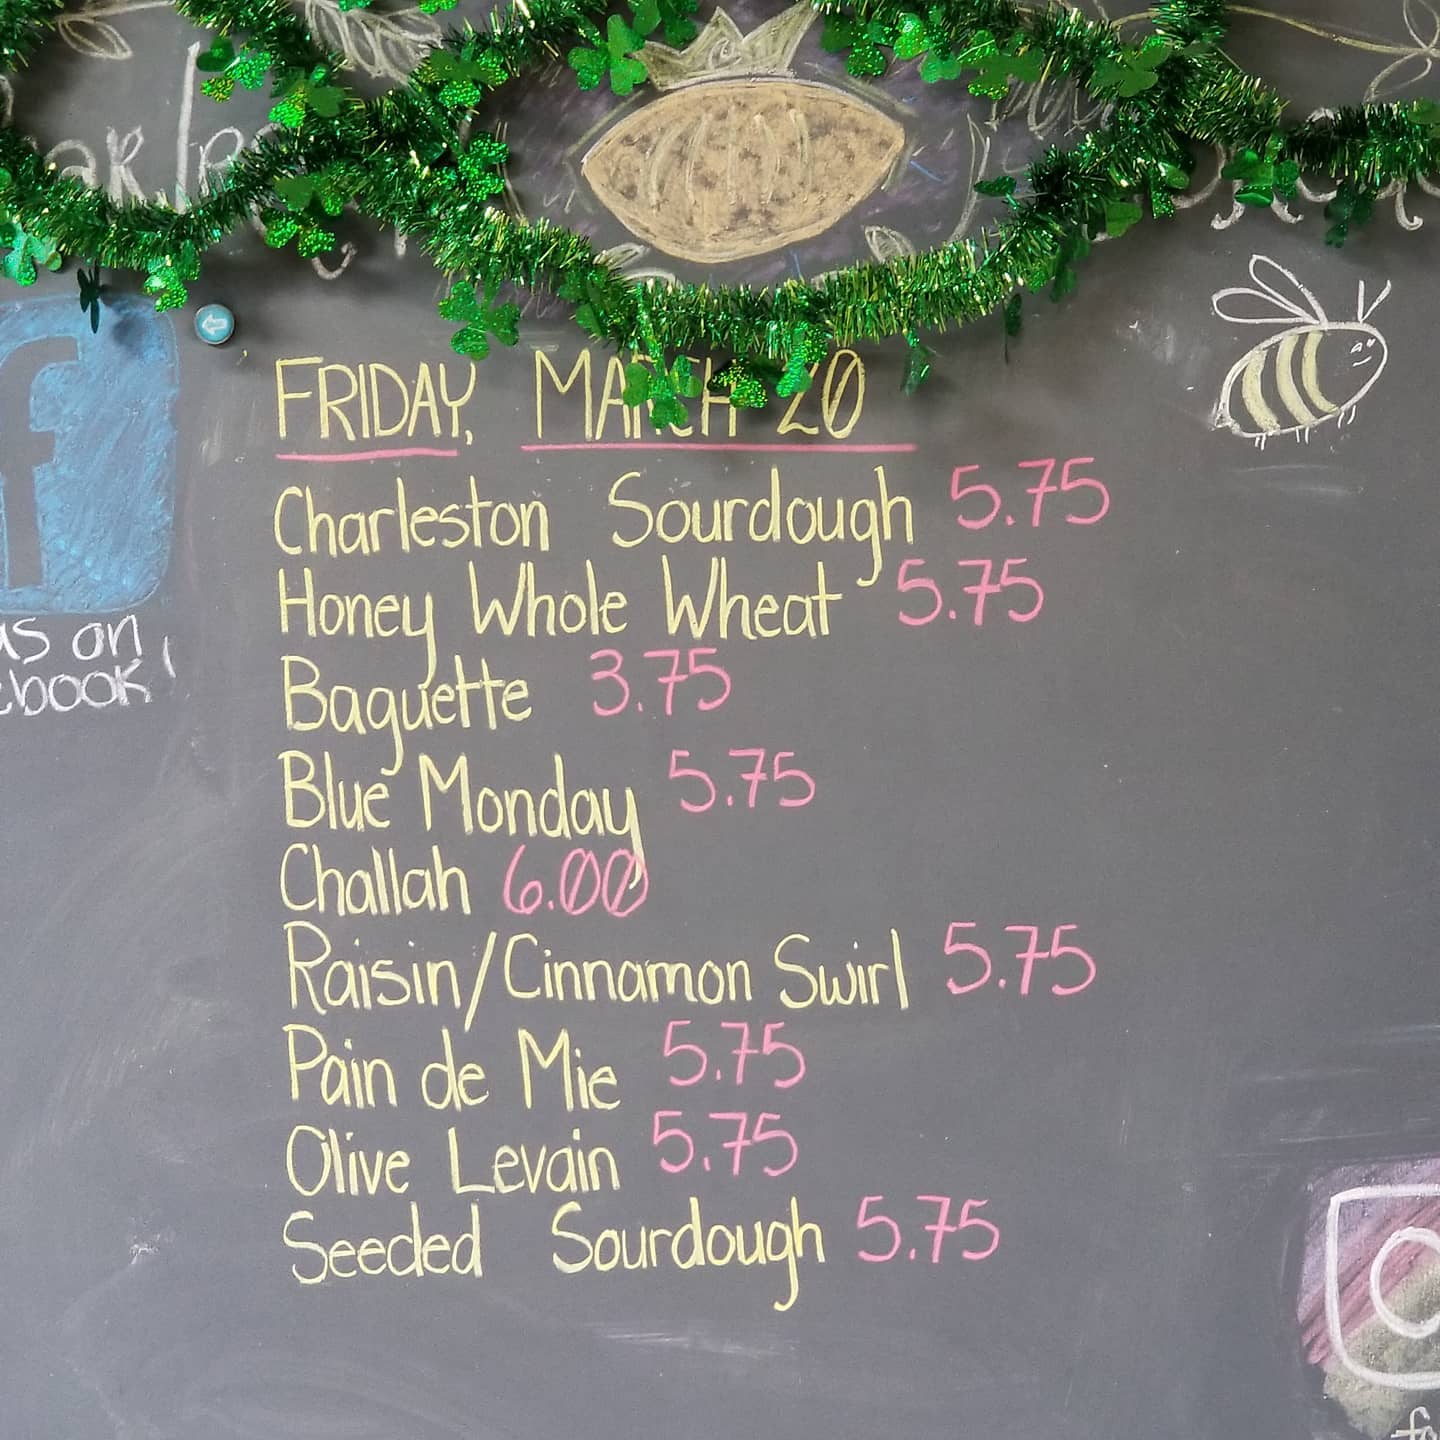 FRIDAY, MARCH 20
Charleston Sourdough 5.75
Honey Whole Wheat 5.75
Baguette 3.75
Blue Monday 5.75
Challah 6.00
Raisin/Cinnamon Swirl 5.75
Pain de Mie 5.75
Olive Levain 5.75
Seeded Sourdough 5.75
f
us on
ebook!